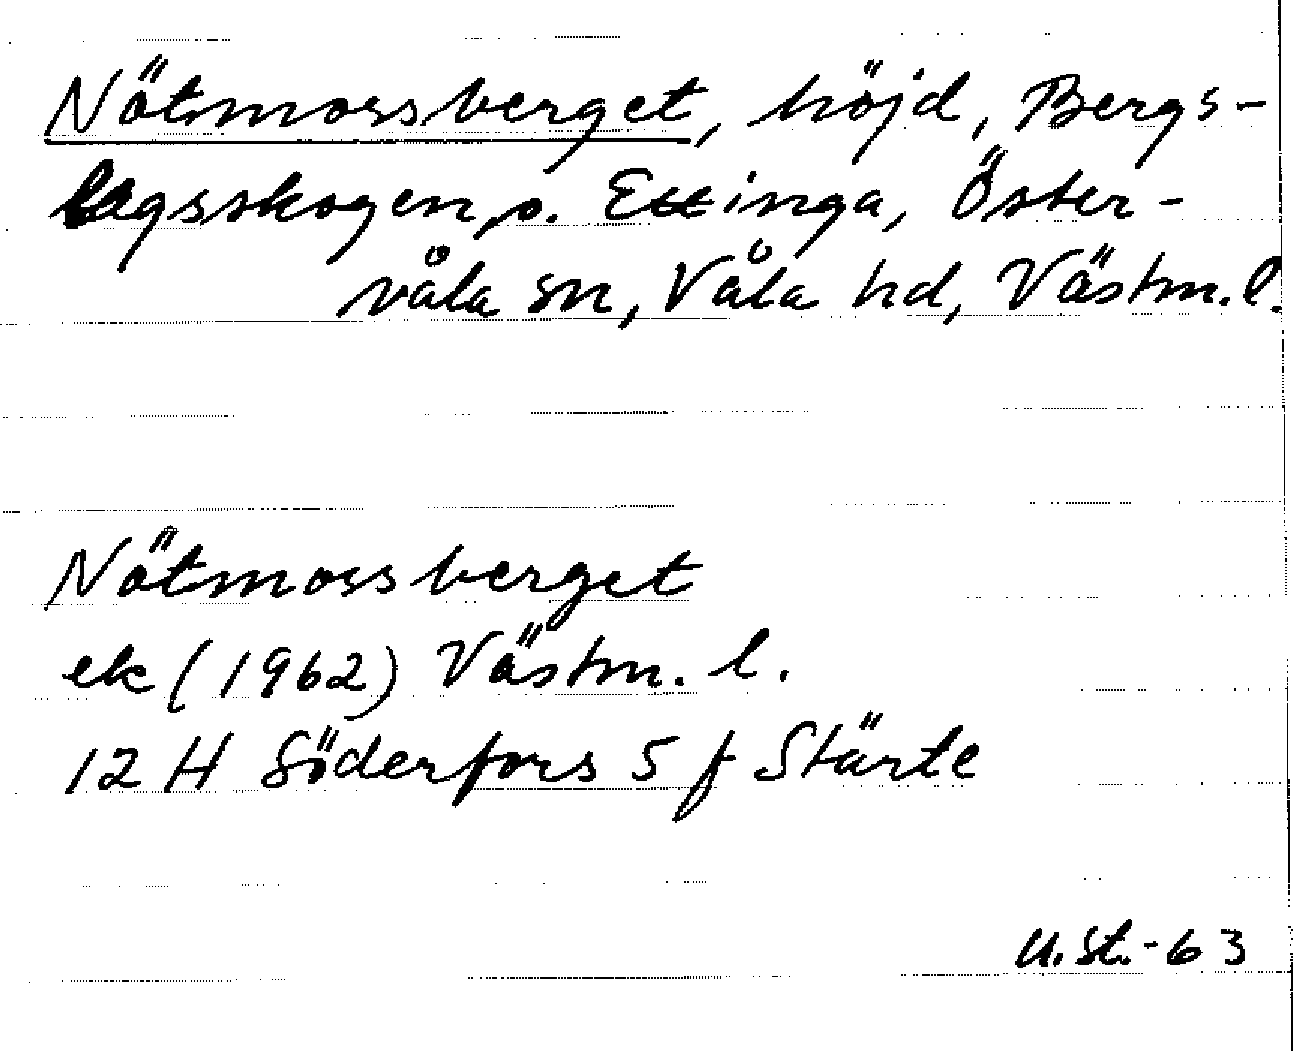 Nötmossberget, höjd, Bergs-
lagsskogen, o. Ettinga, Öster-
våla sn, Våla hd, Västm. l.
Nötmossberget
ek (1962) Västm. l.
12 H Söderfors 5 f Stärte
U. St. -63